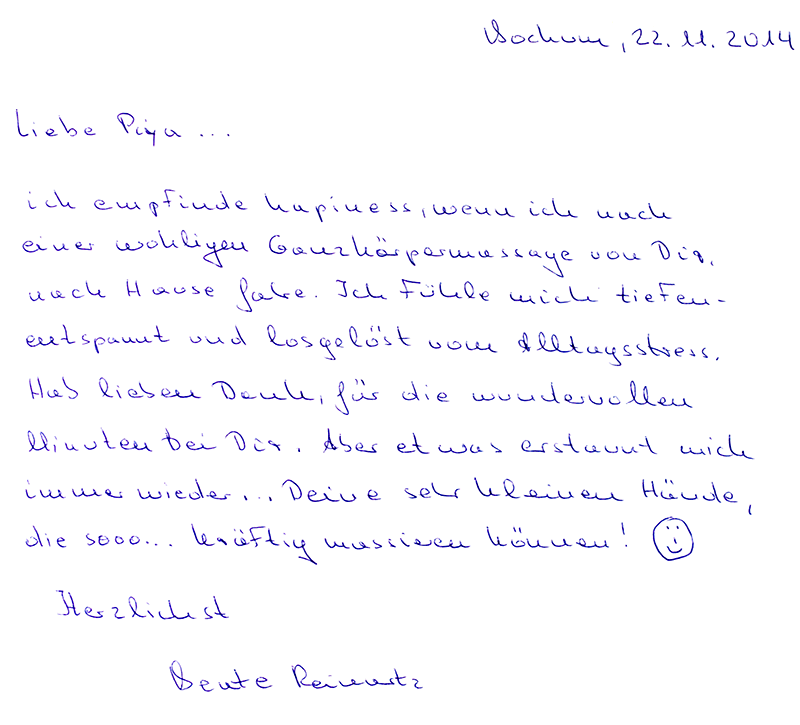 Bochum, 22.11.2014
Liebe Piya ...
ich empfinde hapiness, wenn ich nach
einer wohligen Ganzkörpermassage von Dir,
nach Hause fahre. Ich Fühle mich tiefen-
entspannt und losgelöst vom Alltagsstress.
Hab lieben Dank, für die wundervollen
Minuten bei Dir. Aber etwas erstaunt mich
immer wieder... Deine sehr kleinen Hände,
die sooo... kräftig massieren können!
Herzlichst
Beate